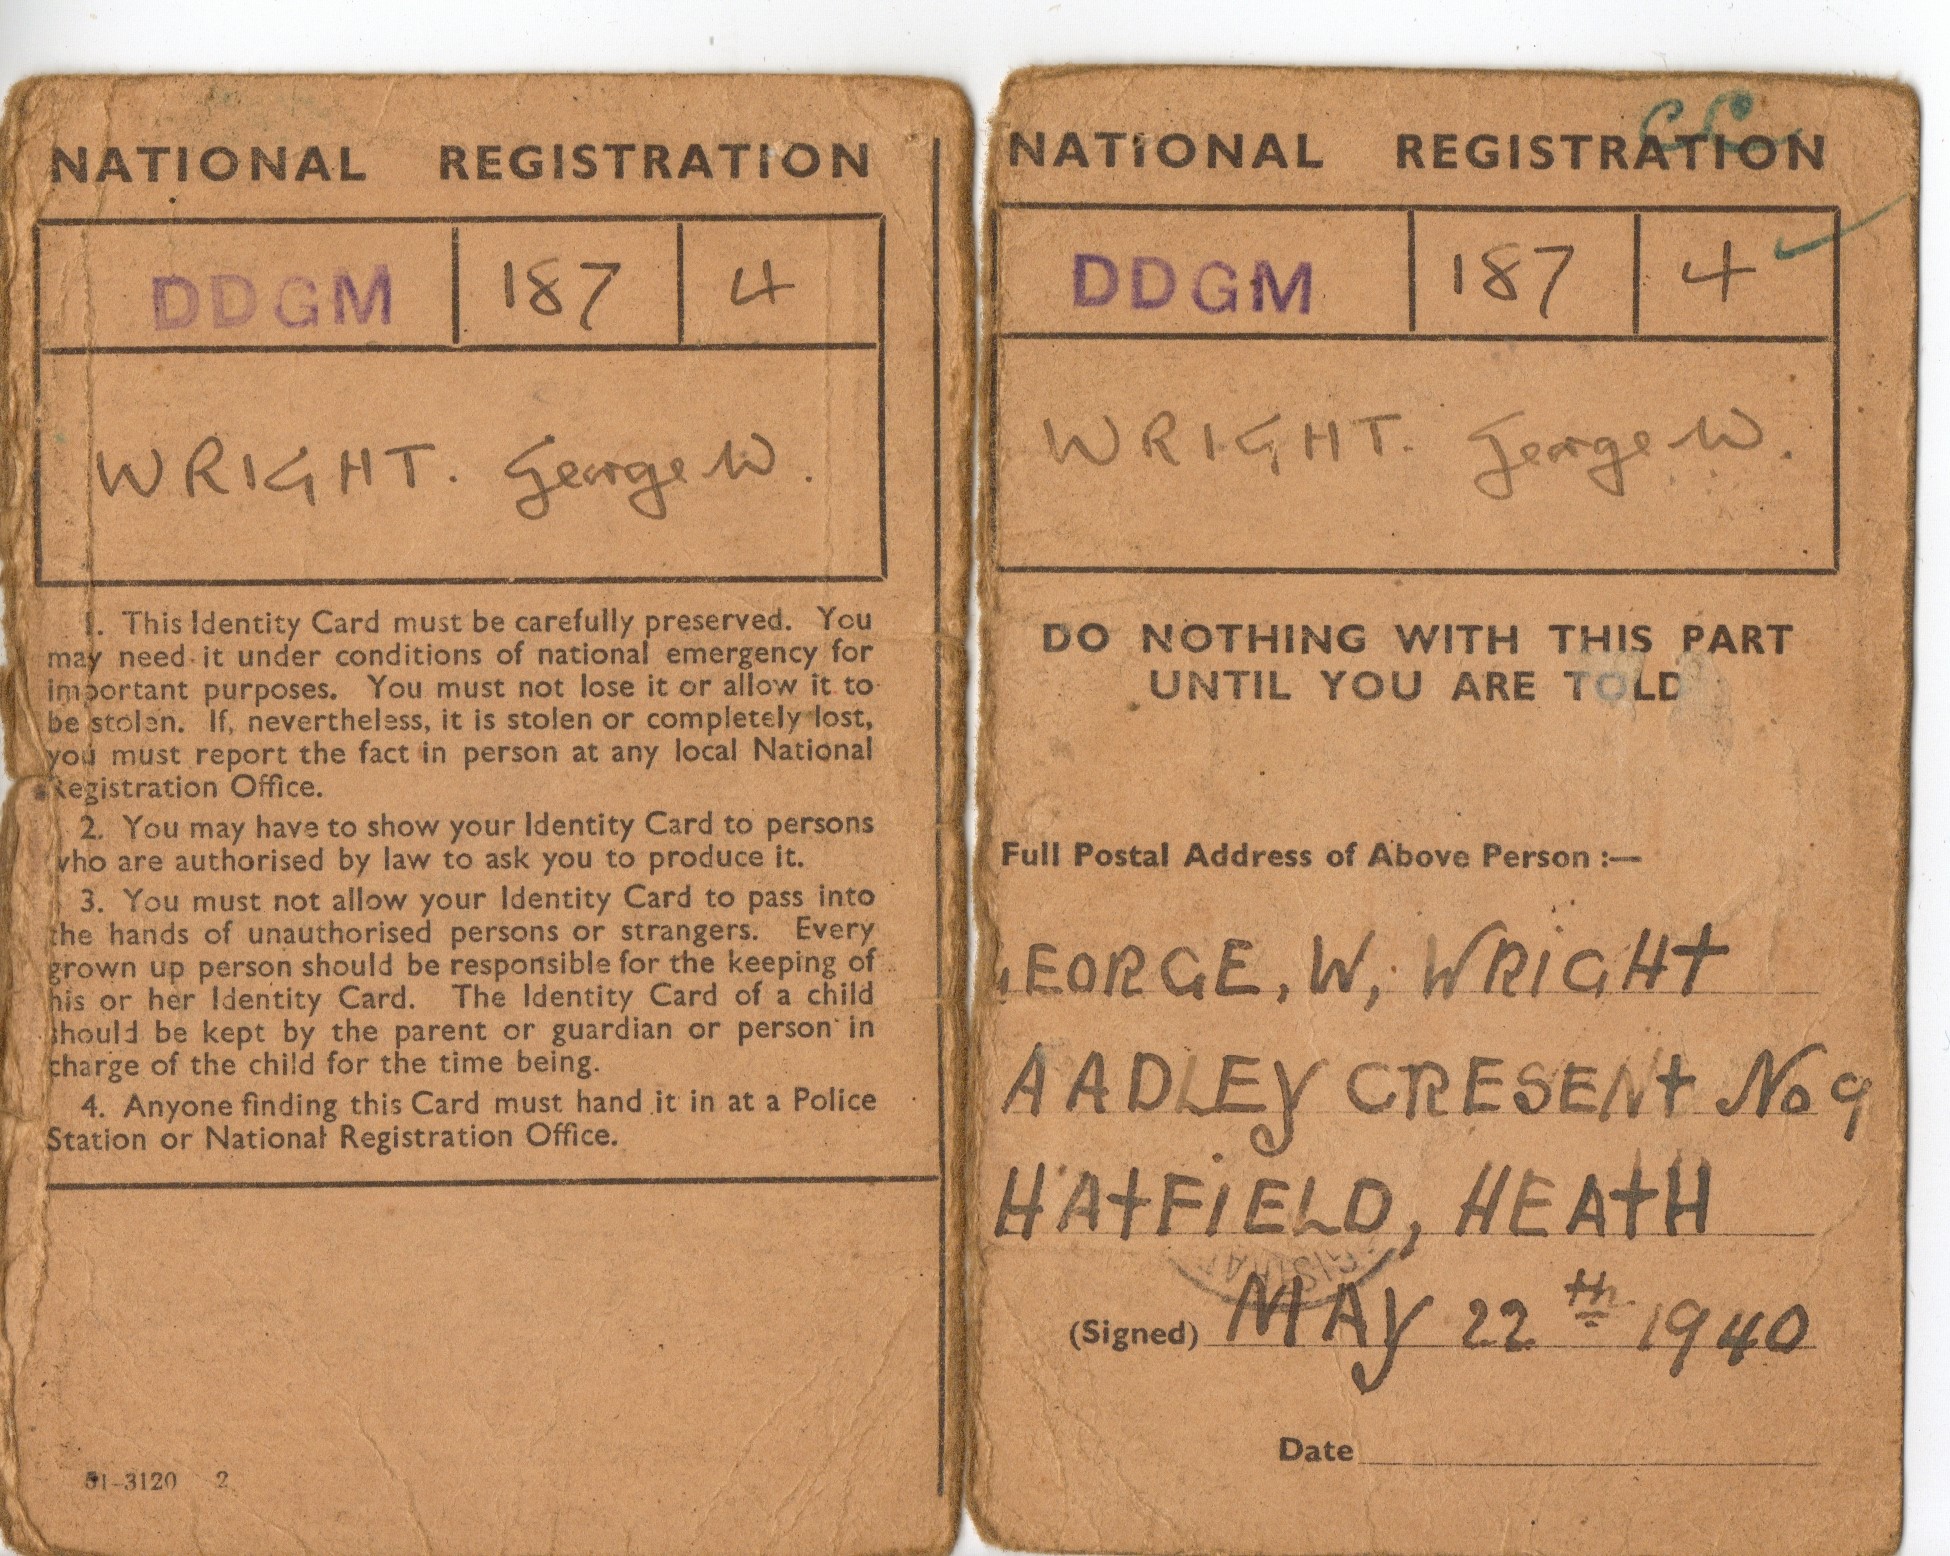 NATIONAL REGISTRATION
DDGM 187 4
WRIGHT. George W.
1. This Identity Card must be carefully preserved. You
may need it under conditions of national emergency for
important purposes. You must not lose it or allow it to
be stolen. If, nevertheless, it is stolen or completely lost,
you must report the fact in person at any local National
Registration Office.
2. You may have to show your Identity Card to persons
who are authorised by law to ask you to produce it.
3. You must not allow your Identity Card to pass into
the hands of unauthorised persons or strangers. Every
grown up person should be responsible for the keeping of
his or her Identity Card. The Identity Card of a child
should be kept by the parent or guardian or person in
charge of the child for the time being.
4. Anyone finding this Card must hand it in at a Police
Station or National Registration Office.
51-3120 2
NATIONAL REGISTRATION
DDGM 187 4
WRIGHT. George W.
DO NOTHING WITH THIS PART
UNTIL YOU ARE TOLD
Full Postal Address of Above Person :—
GEORGE, W, WRIGHT
AADLEY CRESENT No 9
HATFIELD, HEATH
(Signed) MAY 22th 1940
Date